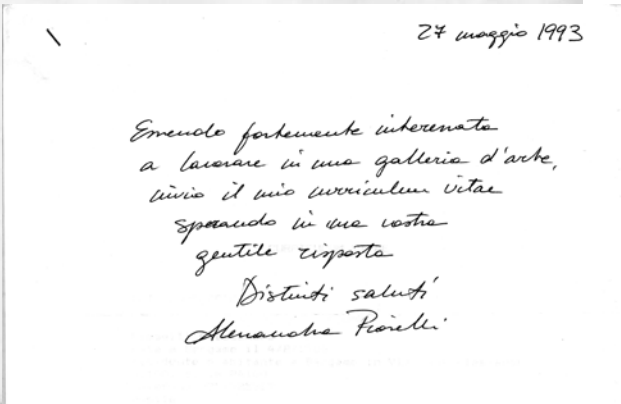 27 maggio 1993
Essendo fortemente interessata
a lavorare in una galleria d'arte,
invio il mio curriculum vitae
sperando in una vostra
gentile risposta
Distinti saluti
Alessandra Fiorelli